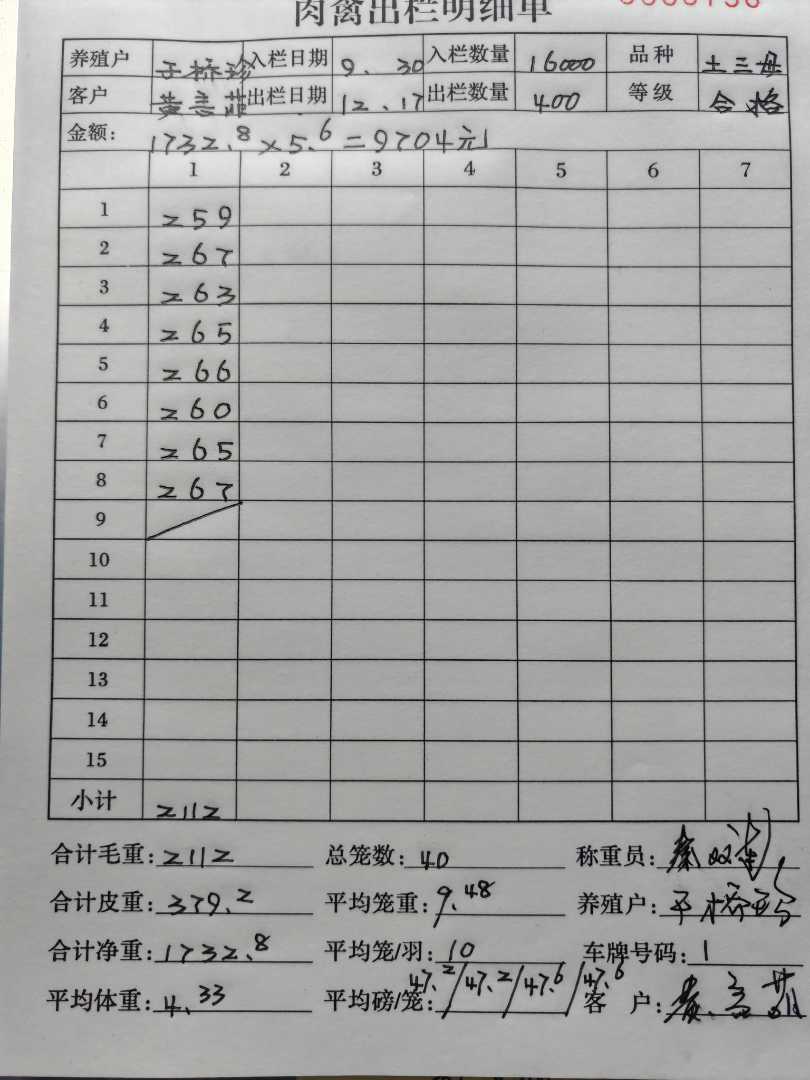 肉禽出栏明细单
养殖户 入栏日期 9.30 入栏数量 16000 品种 土三母
客户 出栏日期 12.17 出栏数量 400 等级 合格
金额: 1732.8×5.6=9704元
1 2 3 4 5 6 7
1 259
2 267
3 263
4 265
5 266
6 260
7 265
8 267
9
10
11
12
13
14
15
小计 2112
合计毛重: 2112 总笼数: 40 称重员:
合计皮重: 379.2 平均笼重: 9.48 养殖户:
合计净重: 1732.8 平均笼/羽: 10 车牌号码: 1
平均体重: 4.33 平均磅/笼: 47.2/47.2/47.6/47.6 客 户: